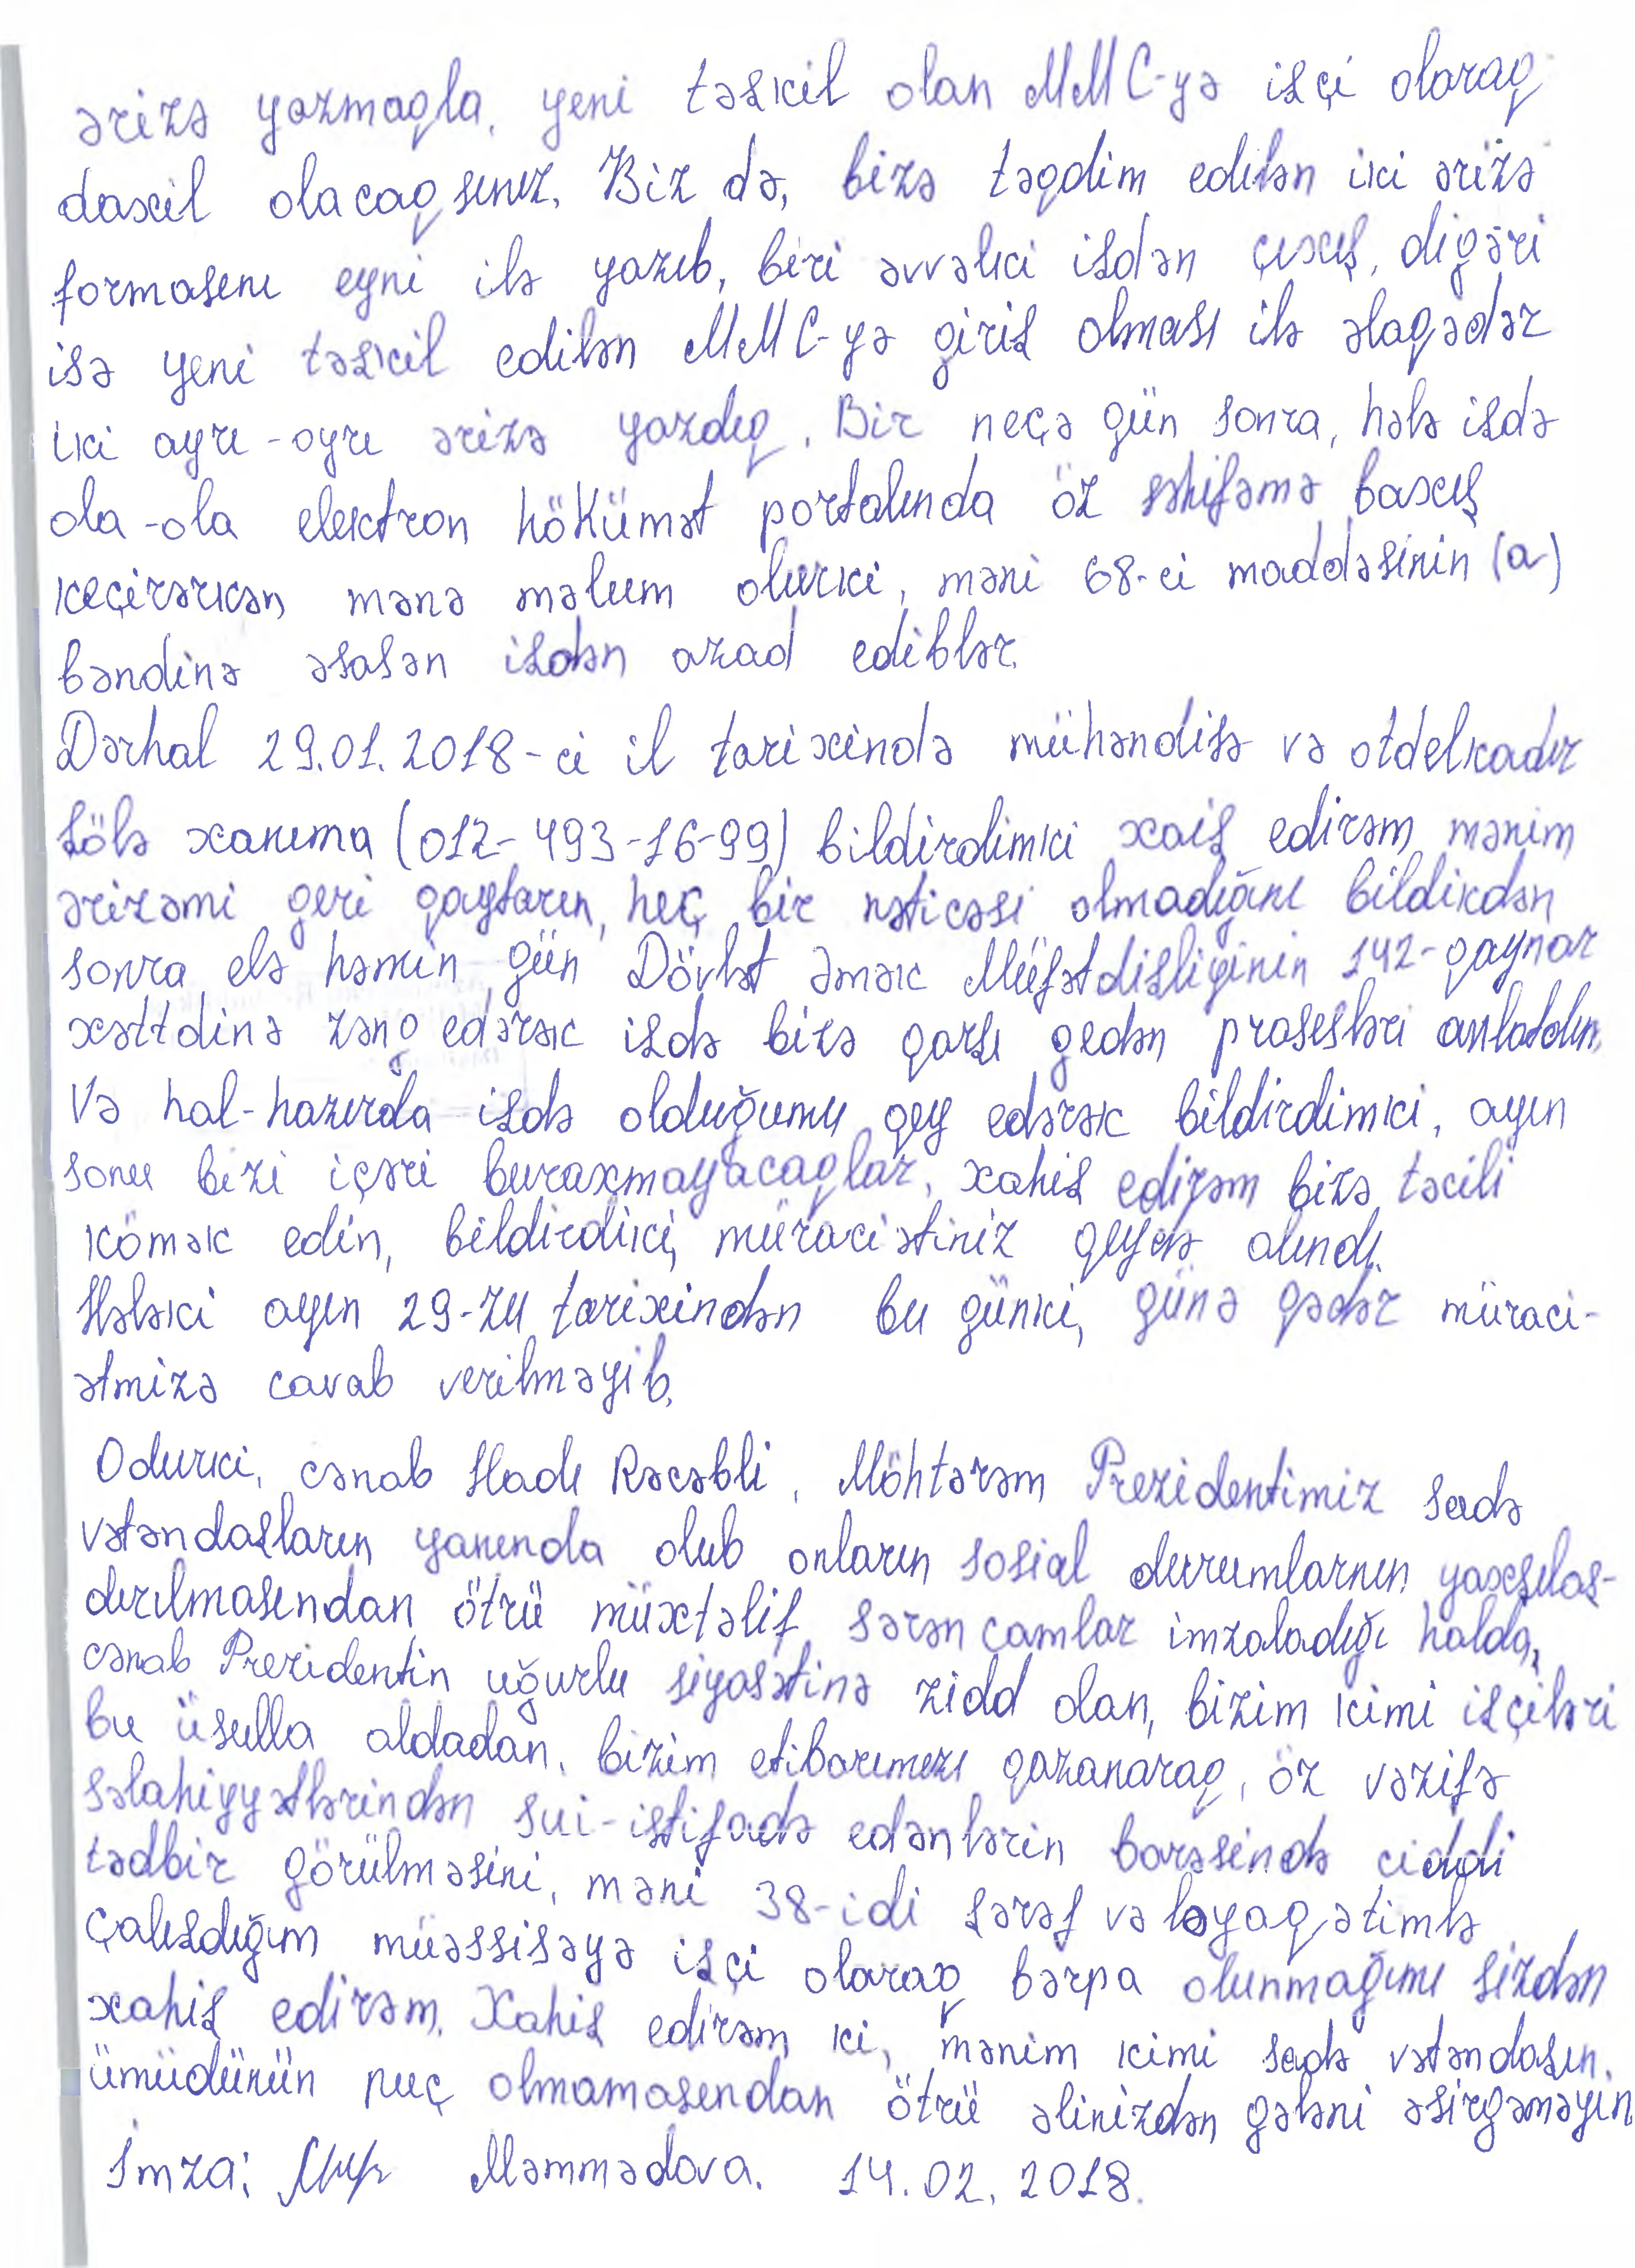 ərizə yazmaqla, yeni təşkil olan MMC-yə işçi olaraq
daxil olacaqsınız. Biz də, bizə təqdim edilən iki ərizə
formasını eyni ilə yazıb, biri əvvəlki işdən çıxış, digəri
isə yeni təşkil edilən MMC-yə giriş olması ilə əlaqədər
iki ayrı-ayrı ərizə yazdıq. Bir neçə gün sonra, hələ işdə
ola-ola elektron hökümət portalında öz səhifəmə baxış
keçirərkən mənə məlum olurki, məni 68-ci maddəsinin (a)
bəndinə əsasən işdən azad ediblər.
Dərhal 29.01.2018-ci il tarixində mühəndisə və otdelkadır
Şölə xanıma (012-493-16-99) bildirdimki xaiş edirəm mənim
ərizəmi geri qaytarın, heç bir nəticəsi olmadığını bildikdən
sonra elə həmin gün Dövlət Əmək Müfətdişliyinin 142-qaynar
xəttdinə zəng edərək işdə bizə qarşı gedən prosesləri anlatdım.
Və hal-hazırda işdə olduğumu qey edərək bildirdimki, ayın
sonu bizi içəri buraxmayacaqlar, xahiş edirəm bizə təcili
kömək edin, bildirdiki, müraciətiniz qeydə alındı.
Hələki ayın 29-zu tarixindən bu günki, günə qədər müraci-
ətmizə cavab verilməyib.
Odurki, cənab Hadi Rəcəbli, Möhtərəm Prezidentimiz sadə
vətəndaşların yanında olub onların sosial durumlarnın yaxşılaş-
dırılmasından ötrü müxtəlif sərəncamlar imzaladığı halda,
cənab Prezidentin uğurlu siyasətinə zidd olan, bizim kimi işçiləri
bu üsulla aldadan, bizim etibarımızı qazanaraq, öz vəzifə
səlahiyyətlərindən sui-istifadə edənlərin barəsində ciddi
tədbir görülməsini, məni 38-idi şərəf və ləyaqətimlə
çalışdığım müəssisəyə işçi olaraq bərpa olunmağımı sizdən
xahiş edirəm. Xahiş edirəm ki, mənim kimi sadə vətəndaşın,
ümüdünün puç olmamasından ötrü əlinizdən gələni əsirgəməyin
İmza: Məmmədova. 14.02.2018.